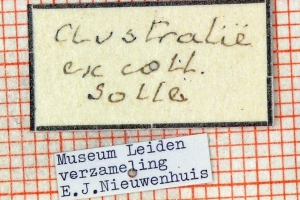 Australië
ex coll.
Solla
Museum Leiden
verzameling
E.J.Nieuwenhuis